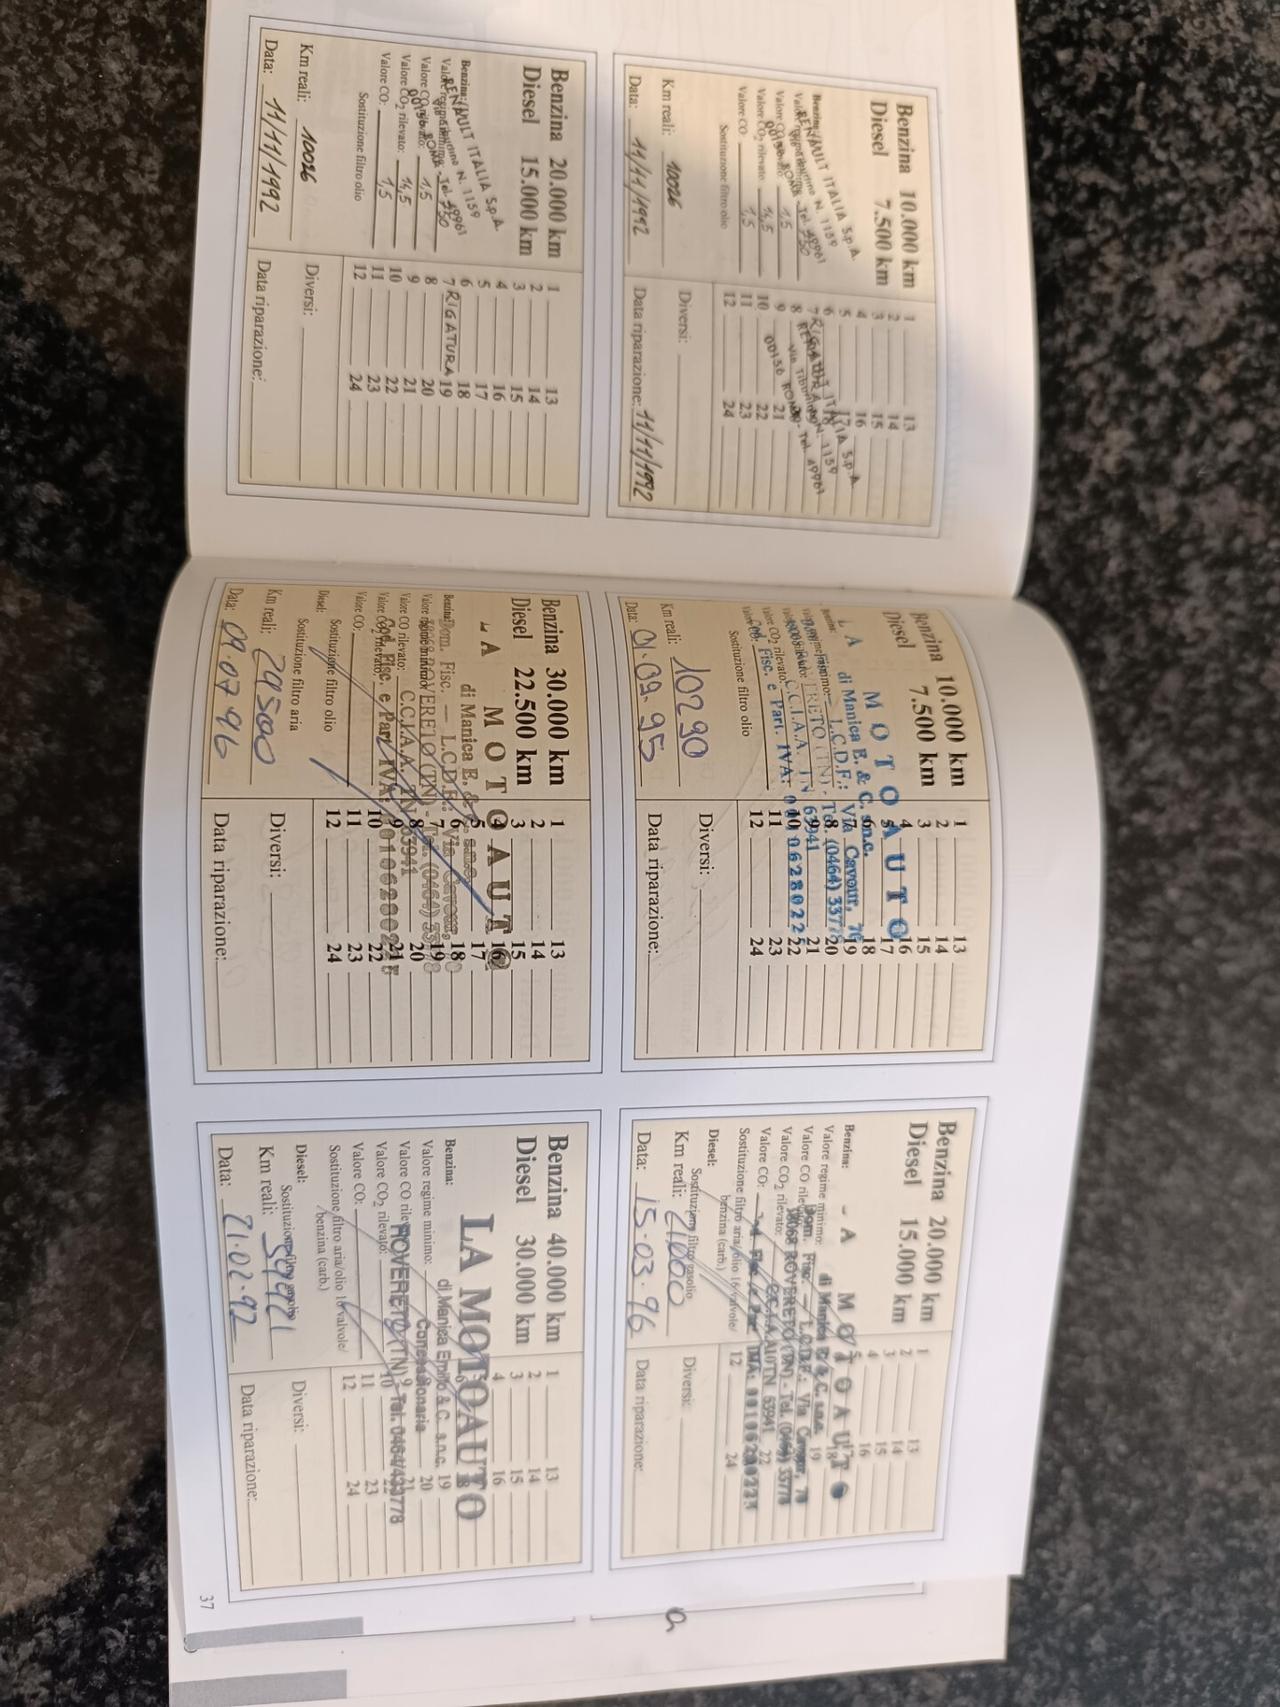 Benzina 10.000 km
Diesel 7.500 km
RENAULT ITALIA S.p.A.
Via Tiburtina N. 1159
00156 ROMA - Tel.
Benzina:
Valore CO rilevato: 1,5
Valore CO2 rilevato: 14,5
Valore CO: 1,5
Sostituzione filtro olio
Km reali: 10026
Data: 11/11/1992
1 13
2 14
3 15
4 16
5 17
6 18
7 RIGATURA 19
8 20
9 21
10 22
11 23
12 24
RENAULT ITALIA S.p.A.
Via Tiburtina N. 1159
00156 ROMA - Tel. 49961
Diversi:
Data riparazione: 11/11/1992
Benzina 20.000 km
Diesel 15.000 km
RENAULT ITALIA S.p.A.
Via Tiburtina N. 1159
00156 ROMA - Tel.
Benzina:
Valore regime minimo: 750
Valore CO rilevato: 1,5
Valore CO2 rilevato: 14,5
Valore CO: 1,5
Sostituzione filtro olio
Km reali: 10026
Data: 11/11/1992
1 13
2 14
3 15
4 16
5 17
6 18
7 RIGATURA 19
8 20
9 21
10 22
11 23
12 24
Diversi:
Data riparazione:
Benzina 10.000 km
Diesel 7.500 km
LA MOTOAUTO
di Manica E. & C. s.n.c.
Dom. Fisc. — L.C.D.F.: Via Cavour, 78
38068 ROVERETO (TN) - Tel. (0464) 33778
C.C.I.A.A. TN 63941
Cod. Fisc. e Part. IVA: 00106280225
Valore CO2 rilevato:
Valore CO:
Sostituzione filtro olio
Km reali: 10290
Data: 01.09.95
1 13
2 14
3 15
4 16
5 17
6 18
7 19
8 20
9 21
10 22
11 23
12 24
Diversi:
Data riparazione:
Benzina 30.000 km
Diesel 22.500 km
LA MOTOAUTO
di Manica E. & C. s.n.c.
Dom. Fisc. — L.C.D.F.: Via Cavour,
38068 ROVERETO (TN) - Tel. (0464) 33778
C.C.I.A.A. TN 63941
Cod. Fisc. e Part. IVA: 00106280225
Benzina:
Valore regime minimo:
Valore CO rilevato:
Valore CO2 rilevato:
Valore CO:
Sostituzione filtro olio
Diesel:
Sostituzione filtro aria
Km reali: 29500
Data: 09.07.96
1 13
2 14
3 15
4 16
5 17
6 18
7 19
8 20
9 21
10 22
11 23
12 24
Diversi:
Data riparazione:
Benzina 20.000 km
Diesel 15.000 km
LA MOTOAUTO
di Manica E. & C. s.n.c.
Dom. Fisc. — L.C.D.F.: Via Cavour, 78
38068 ROVERETO (TN) - Tel. (0464) 33778
C.C.I.A.A. TN 63941
Cod. Fisc. e Part. IVA: 00106280225
Benzina:
Valore regime minimo:
Valore CO rilevato:
Valore CO2 rilevato:
Valore CO:
Sostituzione filtro aria/olio 16 valvole/
benzina (carb.)
Diesel:
Sostituzione filtro gasolio
Km reali: 21000
Data: 15.03.96
1 13
2 14
3 15
4 16
12 24
Diversi:
Data riparazione:
Benzina 40.000 km
Diesel 30.000 km
LA MOTOAUTO
di Manica Emilio & C. s.n.c.
Concessionaria
ROVERETO (TN) - Tel. 0464/433778
Benzina:
Valore regime minimo:
Valore CO rilevato:
Valore CO2 rilevato:
Valore CO:
Sostituzione filtro aria/olio 16 valvole/
benzina (carb.)
Diesel:
Sostituzione filtro gasolio
Km reali:
Data: 21.02.97
1 13
2 14
3 15
4 16
11 23
12 24
Diversi:
Data riparazione:
37